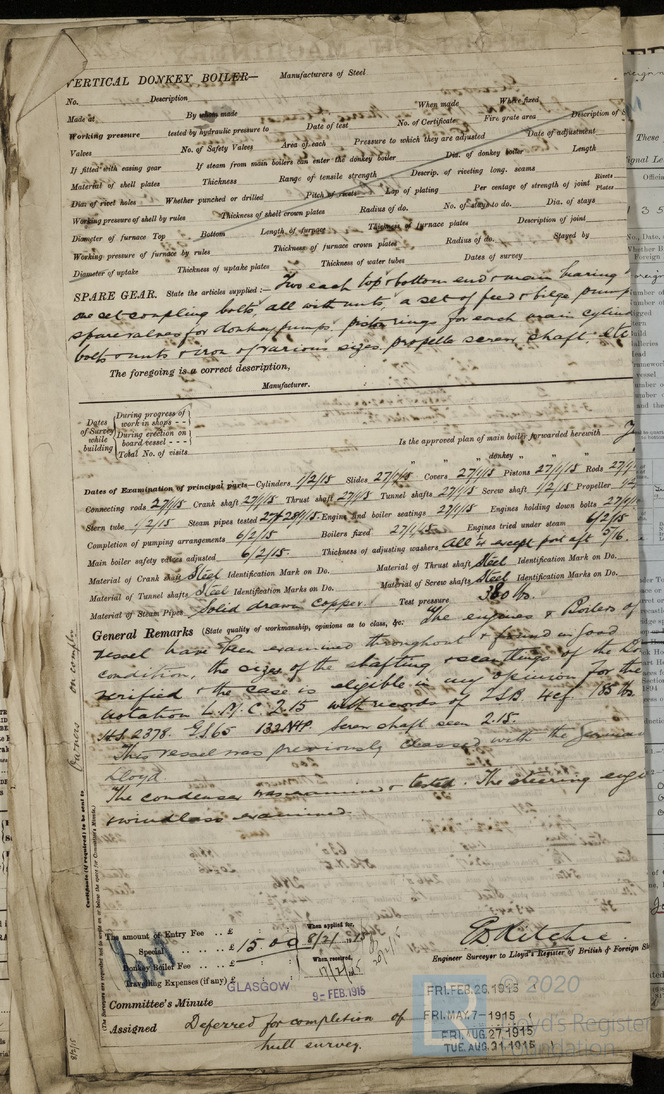 VERTICAL DONKEY BOILER— Manufacturers of Steel
No. Description
Made at By whom made When made Where fixed
Working pressure tested by hydraulic pressure to Date of test No. of Certificate Fire grate area Description of
Valves No. of Safety Valves Area of each Pressure to which they are adjusted Date of adjustment
If fitted with easing gear If steam from main boilers can enter the donkey boiler Dia. of donkey boiler Length
Material of shell plates Thickness Range of tensile strength Descrip. of riveting long. seams
Dia. of rivet holes Whether punched or drilled Pitch of rivets Lap of plating Per centage of strength of joint Rivets Plates
Working pressure of shell by rules Thickness of shell crown plates Radius of do. No. of stays to do. Dia. of stays
Diameter of furnace Top Bottom Length of furnace Thickness of furnace plates Description of joint
Working pressure of furnace by rules Thickness of furnace crown plates Radius of do. Stayed by
Diameter of uptake Thickness of uptake plates Thickness of water tubes Dates of survey
SPARE GEAR. State the articles supplied:— Two each top & bottom end & main bearing
one set coupling bolts, all with nuts, a set of feed & bilge pump
spare valves for donkey pumps, piston rings for each main cylind
bolts & nuts & iron of various sizes, propeller screw shaft etc
The foregoing is a correct description,
Manufacturer.
Dates of Survey while building
During progress of work in shops - -
During erection on board vessel - - -
Total No. of visits
Is the approved plan of main boiler forwarded herewith
" " " donkey " " "
Dates of Examination of principal parts—Cylinders 1/2/15 Slides 27/1/15 Covers 27/1/15 Pistons 27/1/15 Rods 27/1
Connecting rods 27/1/15 Crank shaft 27/1/15 Thrust shaft 27/1/15 Tunnel shafts 27/1/15 Screw shaft 1/2/15 Propeller
Stern tube 1/2/15 Steam pipes tested 27 & 28/1/15 Engine and boiler seatings 27/1/15 Engines holding down bolts 27/1/1
Completion of pumping arrangements 6/2/15 Boilers fixed 27/1/15 Engines tried under steam 6/2/15
Main boiler safety valves adjusted 6/2/15. Thickness of adjusting washers All ¼ except port aft 5/16
Material of Crank shaft Steel Identification Mark on Do. Material of Thrust shaft Steel Identification Mark on Do.
Material of Tunnel shafts Steel Identification Marks on Do. Material of Screw shafts Steel Identification Marks on Do.
Material of Steam Pipes Solid drawn copper. Test pressure 380 lbs.
General Remarks (State quality of workmanship, opinions as to class, &c. The engines & Boilers of
vessel have been examined throughout & found in good
condition, the sizes of the shafting & scantlings of the
verified & the case is eligible in my opinion for the
notation L.M.C. 2.15 with records of 185 lbs
H.S. 2378. G.S 65 132 NHP. Screw shaft seen 2.15.
This vessel was previously classed with the German
Lloyd
The condenser was examined & tested. The steering engi
& windlass examined.
The amount of Entry Fee .. £
Special .. £ 15.00
Donkey Boiler Fee .. £
Travelling Expenses (if any) £
When applied for,
8/2/1915
When received,
Engineer Surveyor to Lloyd's Register of British & Foreign Sh
GLASGOW 9-FEB.1915
Committee's Minute
Assigned Deferred for completion of
hull survey.
FRI.FEB.26.1915
FRI.MAY.7-1915
FRI.AUG.27.1915
TUE.AUG.31.1915
© 2020
Lloyd's Register
Foundation